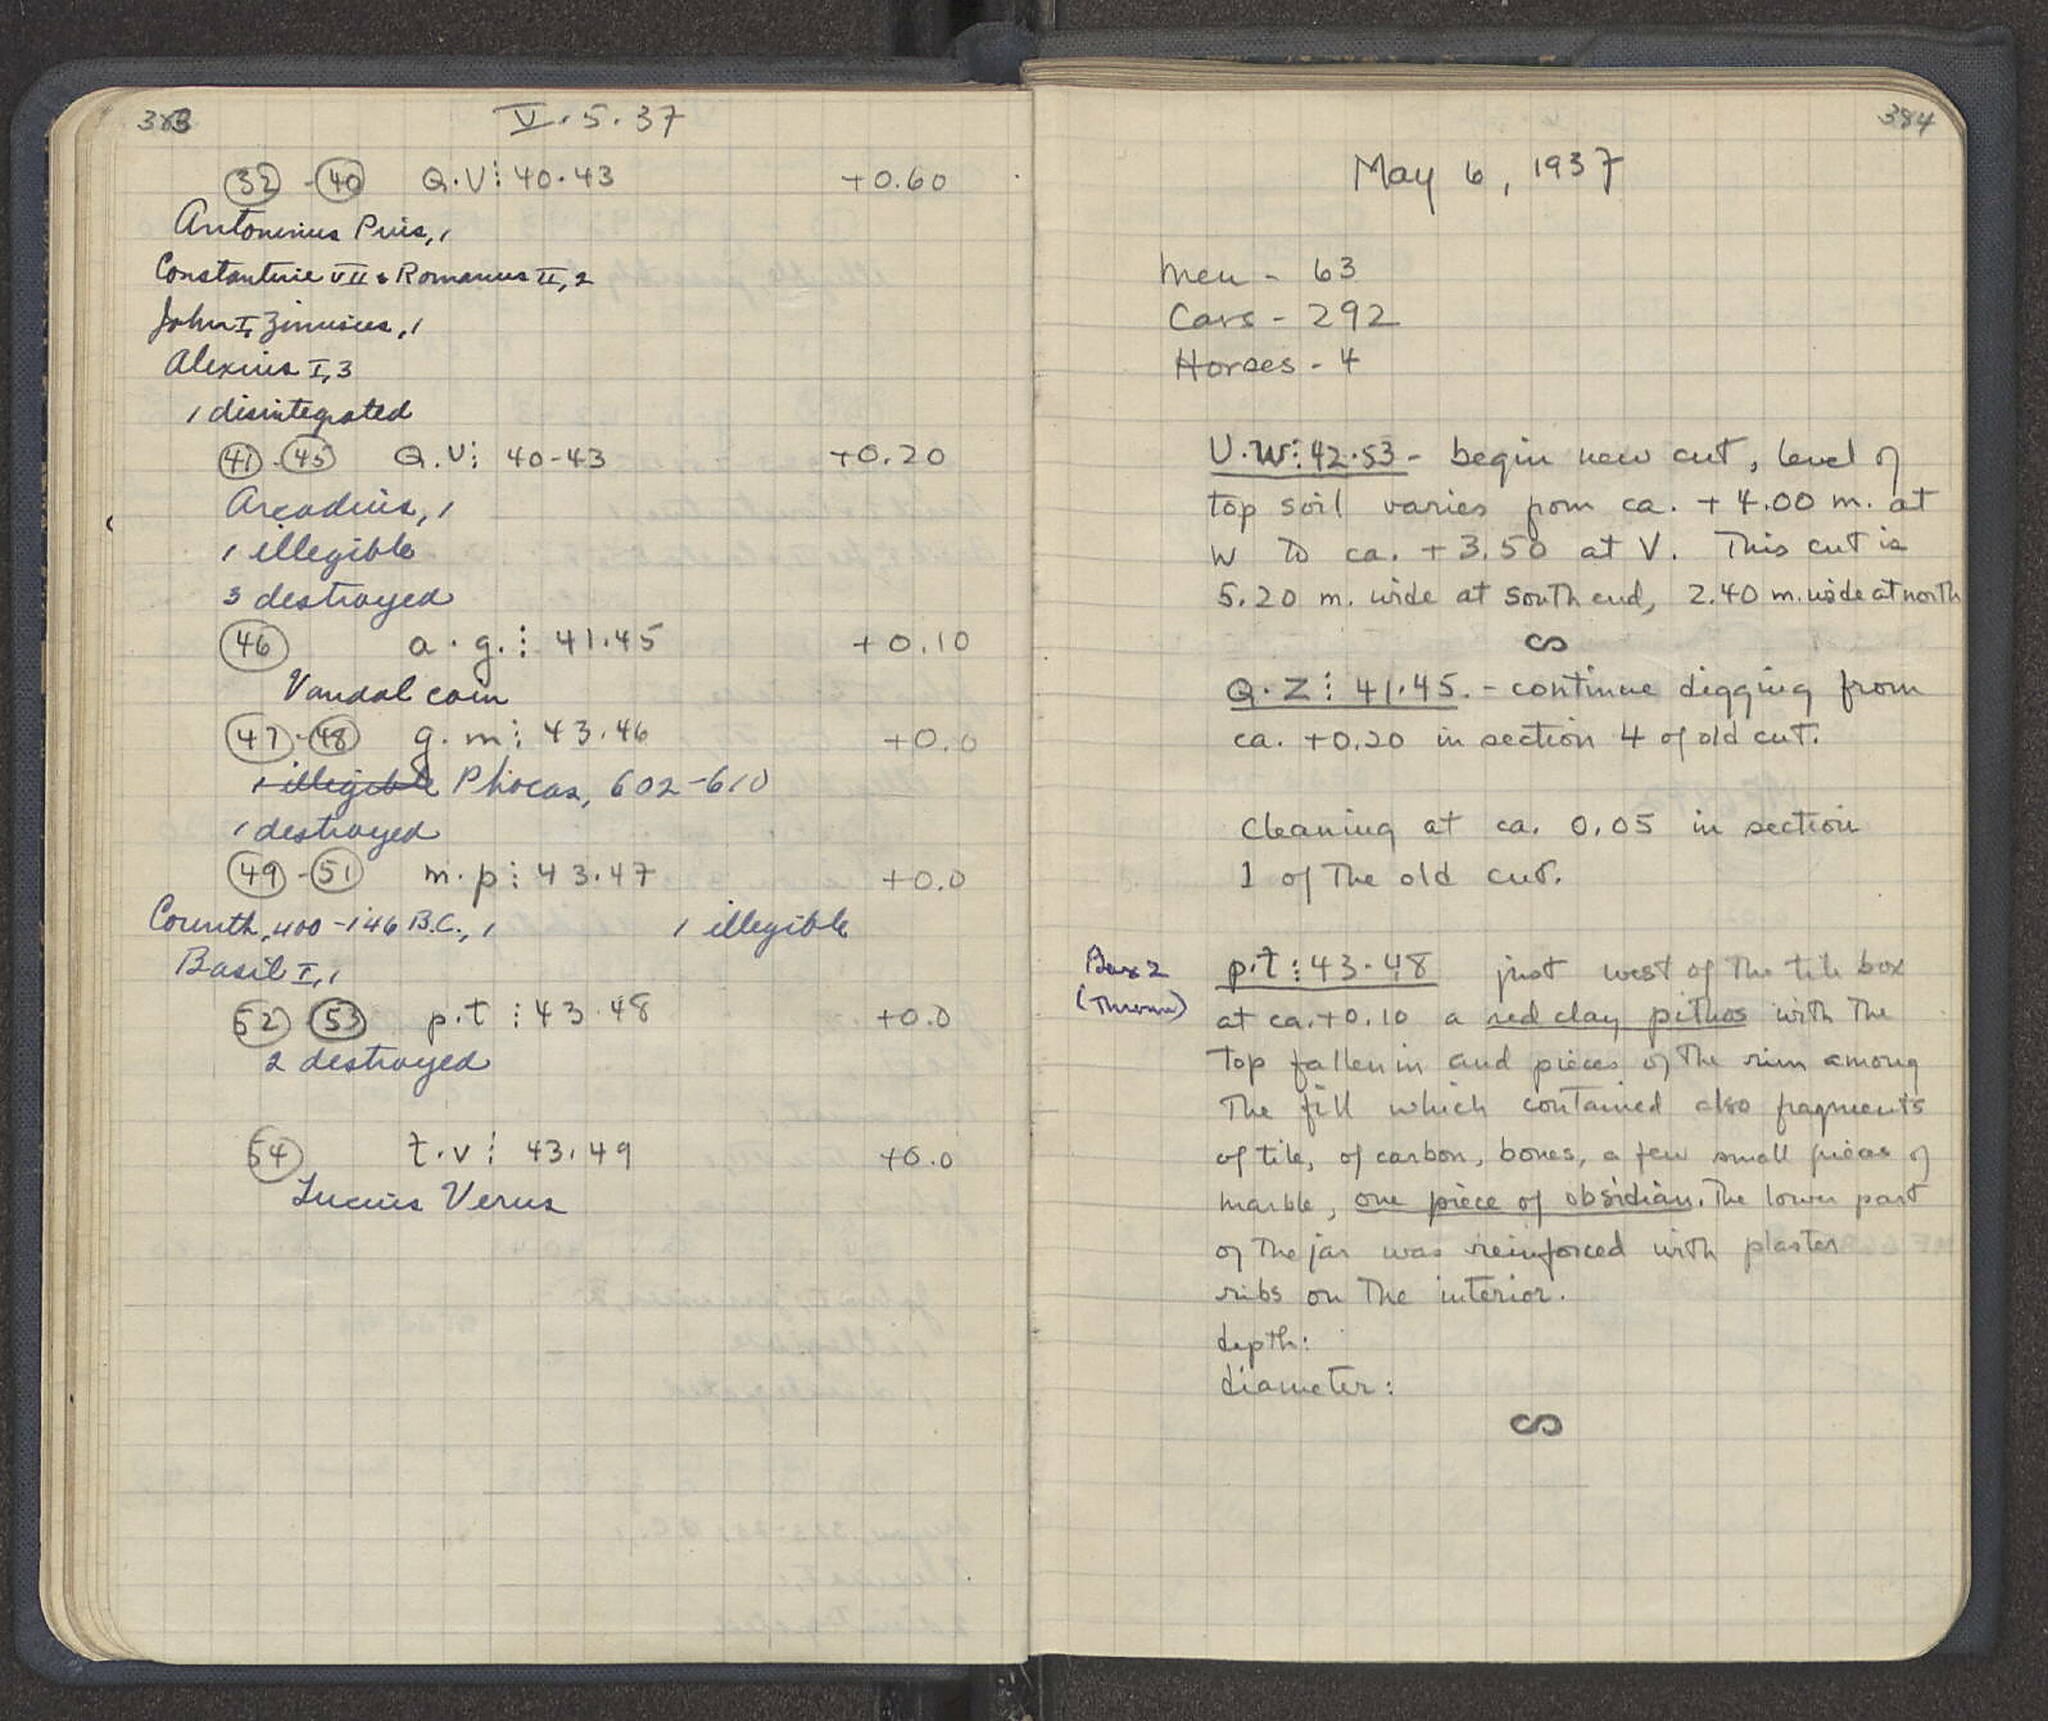 383
V.5.37
32 - 40 Q.V⋮40.43 +0.60
Antoninus Pius, 1
Constantine VII & Romanus II, 2
John I, Zimisces, 1
Alexius I, 3
1 disintegrated
41 - 45 Q.V⋮ 40-43 +0.20
Arcadius, 1
1 illegible
3 destroyed
46 a.g.⋮ 41.45 +0.10
Vandal coin
47 - 48 g.m⋮ 43.46 +0.0
1 illegible Phocas, 602-610
1 destroyed
49 - 51 m.p⋮ 43.47 +0.0
Corinth, 400-146 B.C., 1 1 illegible
Basil I, 1
52 53 p.t⋮43.48 +0.0
2 destroyed
54 t.v⋮ 43.49 +0.0
Lucius Verus
384
May 6, 1937
Men - 63
Cars - 292
Horses - 4
U.W⋮42.53 - begin new cut, level of
top soil varies from ca. +4.00 m. at
W to ca. +3.50 at V. This cut is
5.20 m. wide at south end, 2.40 m. wide at north
Q.Z⋮ 41.45. - continue digging from
ca. +0.20 in section 4 of old cut.
Cleaning at ca. 0.05 in section
1 of the old cut.
Box 2
(Thrown)
p.t⋮43-48 just west of the tile box
at ca. +0.10 a red clay pithos with the
top fallen in and pieces of the rim among
the fill which contained also fragments
of tile, of carbon, bones, a few small pieces of
marble, one piece of obsidian. The lower part
of the jar was reinforced with plaster
ribs on the interior.
depth:
diameter: